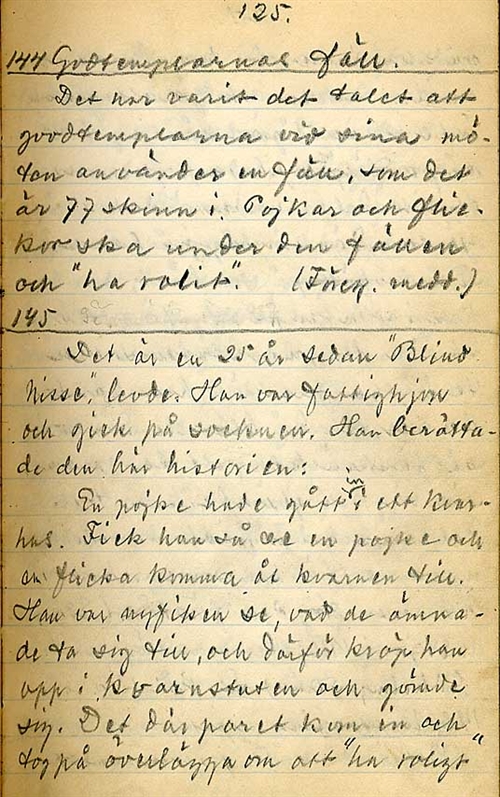 125.
144 Godtemplarnas fäll.
Det har varit det talet att
goodtemplarna vid sina mö-
ten använder en fäll, som det
är 77 skinn i. Pojkar och flic-
kor ska under den fällen
och "ha rolit". (Föreg. medd.)
145
Det är en 25 år sedan "Blind
Nisse", levde. Han var fattighjon
och gick på socknen. Han berätta-
de den här historien:
En pojke hade gått in i ett kvar-
hus. Fick han så se en pojke och
en flicka komma åt kvarnen till.
Han var nyfiken se, vad de ämna-
de ta sig till, och därför kröp han
opp i kvarnstuten och gömde
sig. Det där paret kom in och
tog på överlägga om att "ha roligt"